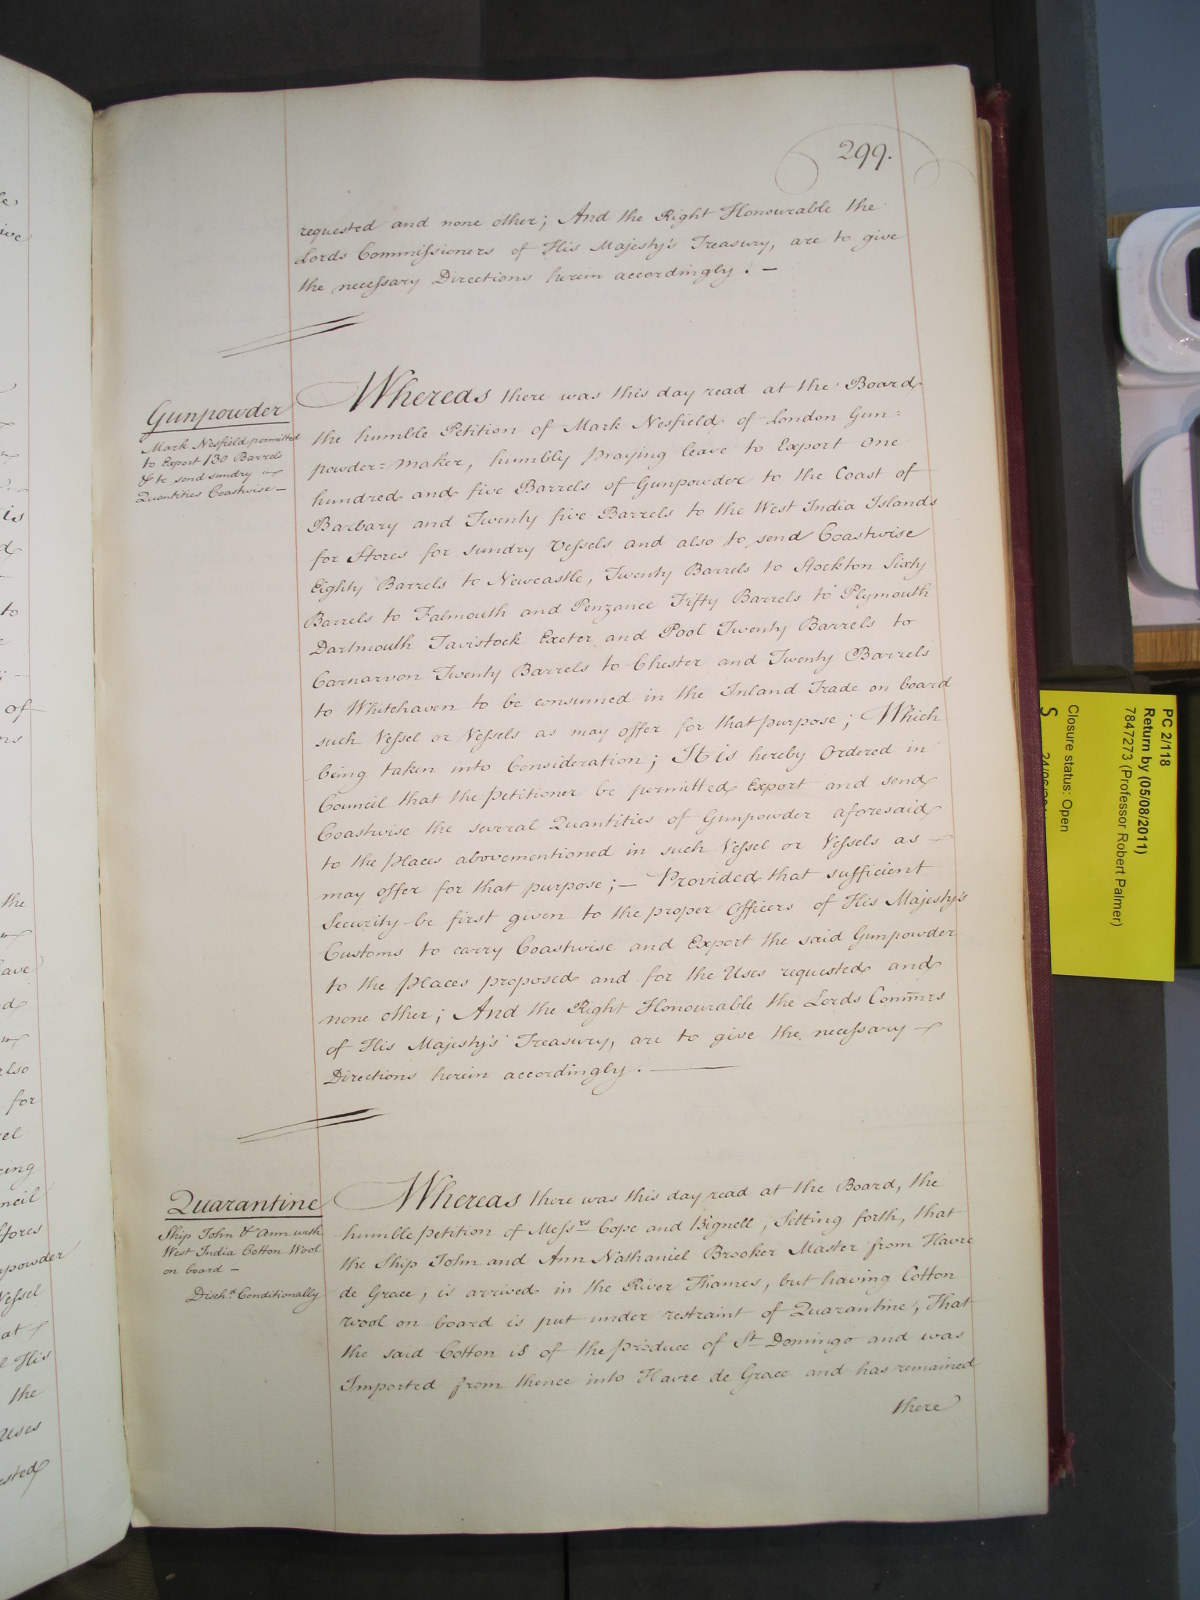 299.
requested and none other; And the Right Honourable the
Lords Commissioners of His Majesty's Treasury, are to give
the necessary Directions herein accordingly. —
Gunpowder
Mark Nesfield permitted
to Export 130 Barrels
& to send sundry
Quantities Coastwise —
Whereas there was this day read at the Board
the humble Petition of Mark Nesfield of London Gun=
powder=maker, humbly praying leave to Export One
hundred and five Barrels of Gunpowder to the Coast of
Barbary and Twenty five Barrels to the West India Islands
for Stores for sundry Vessels and also to send Coastwise
Eighty Barrels to Newcastle, Twenty Barrels to Stockton Sixty
Barrels to Falmouth and Penzance Fifty Barrels to Plymouth
Dartmouth Tavistock Exeter and Pool Twenty Barrels to
Carnarvon Twenty Barrels to Chester and Twenty Barrels
to Whitehaven to be consumed in the Inland Trade on board
such Vessel or Vessels as may offer for that purpose; Which
being taken into Consideration; It is hereby Ordered in
Council that the Petitioner be permitted Export and send
Coastwise the several Quantities of Gunpowder aforesaid
to the Places abovementioned in such Vessel or Vessels as
may offer for that purpose; — Provided that sufficient
Security be first given to the proper Officers of His Majesty's
Customs to carry Coastwise and Export the said Gunpowder
to the Places proposed and for the Uses requested and
none other; And the Right Honourable the Lords Commrs
of His Majesty's Treasury, are to give the necessary
Directions herein accordingly. —
Quarantine
Ship John & Ann with
West India Cotton Wool
on board —
Dischd. Conditionally
Whereas there was this day read at the Board, the
humble petition of Messrs Cope and Bignell, Setting forth, that
the Ship John and Ann Nathaniel Brooker Master from Havre
de Grace, is arrived in the River Thames, but having Cotton
wool on board is put under restraint of Quarantine, That
the said Cotton is of the produce of St Domingo and was
Imported from thence into Havre de Grace and has remained
there
PC 2/118
Return by (05/08/2011)
7847273 (Professor Robert Palmer)
Closure status: Open
S
is
to
of
the
also
for
the